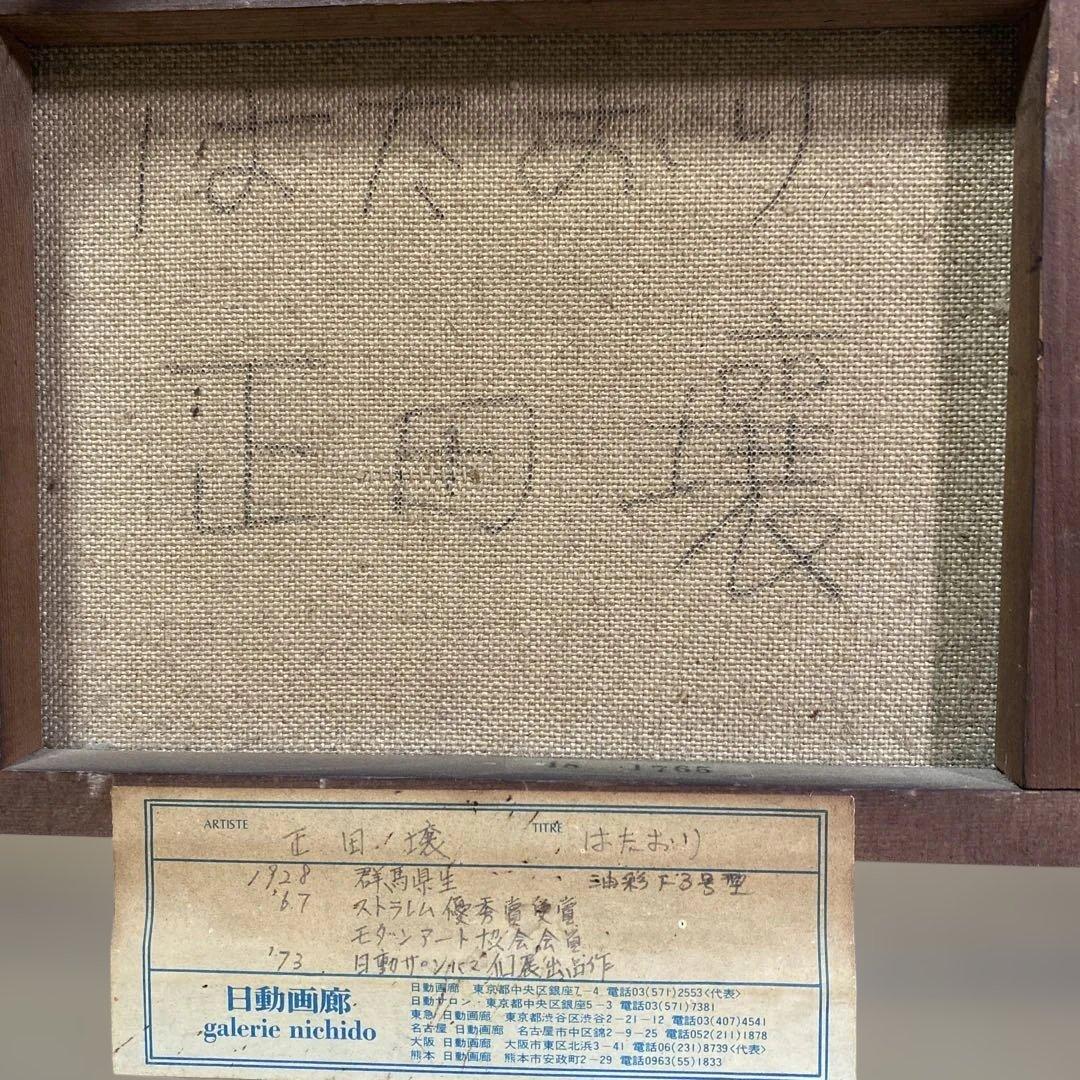 はたおり
正田壤
1765
ARTISTE 正田壤 TITRE はたおり
1928 群馬県生 油彩 F3号型
'67 ストラレム優秀賞受賞
モダンアート協会会員
'73 日動サロンにて個展出品作
日動画廊
galerie nichido
日動画廊 東京都中央区銀座7-4 電話03(571)2553<代表>
日動サロン・東京都中央区銀座5-3 電話03(571)7381
東急 日動画廊 東京都渋谷区渋谷2-21-12 電話03(407)4541
名古屋 日動画廊 名古屋市中区錦2-9-25 電話052(211)1878
大阪 日動画廊 大阪市東区北浜3-41 電話06(231)8739<代表>
熊本 日動画廊 熊本市安政町2-29 電話0963(55)1833